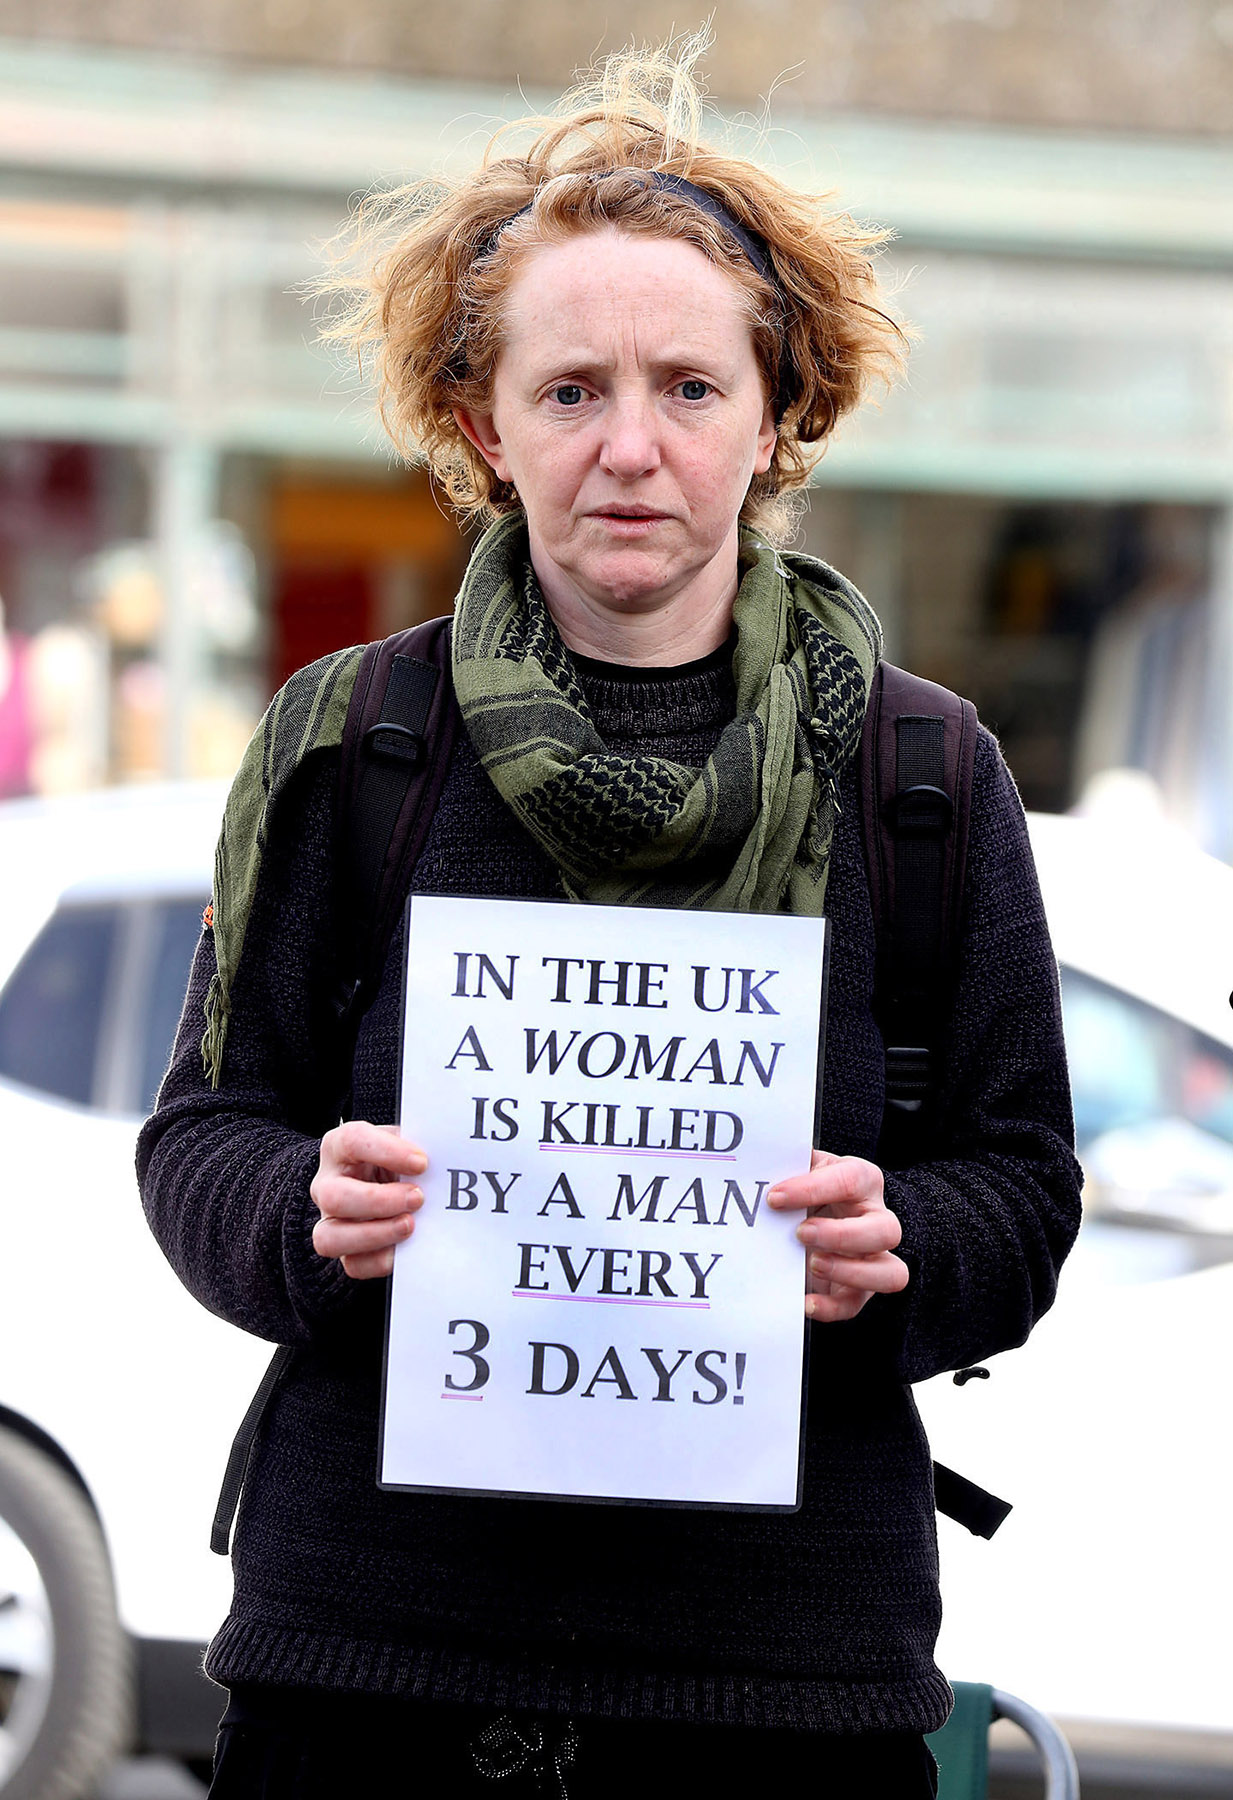 IN THE UK
A WOMAN
IS KILLED
BY A MAN
EVERY
3 DAYS!